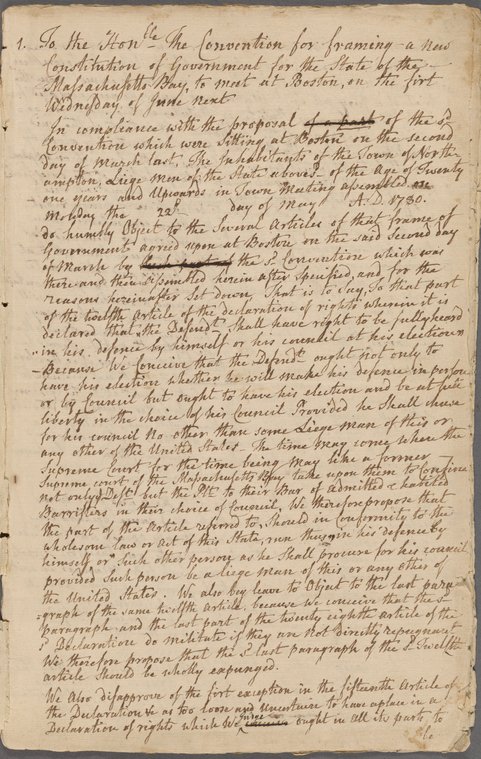 1. To the Hon^ble The Convention for framing a new
Constitution of Government for the State of the
Massachusetts Bay, to meet at Boston, on the first
Wednesday of June next
In compliance with the proposal of a part of the s^d
Convention which were sitting at Boston on the second
day of March last, The Inhabitants of the Town of North-
ampton, Liege men of the State aboves^d of the Age of Twenty
one years and Upwards in Town Meeting assembled on
Monday the 22^d day of May A.D. 1780.
do humbly Object to the Several Articles of that frame of
Government agreed upon at Boston on the said Second day
of March by such part of the s^d Convention which was
there and then Assembled herein after Specified, and for the
reasons hereinafter Set down, That is to Say, To that part
of the twelfth Article of the declaration of rights wherein it is
declared that the Defend^t Shall have right to be fully heard
in his defence by himself or his council at his election
Because We Conceive that the Defend^t ought not only to
have his election whether he will make his defence in person
or by Council but ought to have his election and be at full
liberty in the choice of his Council Provided he Shall chuse
for his council No other than some Liege man of this or
any other of the United States. The time may come where the
Supreme Court for the time being may like a former
Supreme court of the Massachusetts Bay take upon them to Confine
not only y^e Def^t but the Plt to their Bar of Admitted & habited
Barristers in their choice of Council, We therefore propose that
the part of the Article referred to, Should in Conformity to the
wholesome Law or Act of this State, run thus, in his defence by
himself or Such other person as he Shall procure for his council
provided Such person be a liege man of this or any other of
the United States. We also beg leave to Object to the last para
=graph of the same twelfth Article, because we conceive that the s^d
Paragraph and the last part of the twenty eighth Article of the
s^d Declaration do militate if they are Not directly repugnant
We therefore propose that the s^d last paragraph of the s^d Twelfth
article Should be wholly expunged.
We Also Disapprove of the first exception in the fifteenth Article of
the Declaration &c as too loose and Uncertain to have a place in a
Declaration of rights which We ought in all its parts, to
be